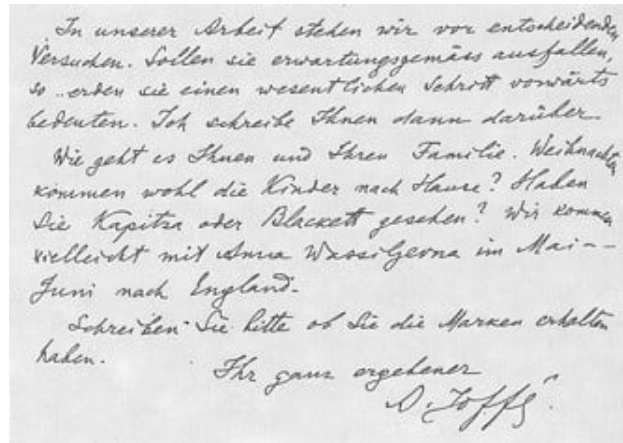 In unserer Arbeit stehen wir vor entscheidenden
Versuchen. Sollen sie erwartungsgemäss ausfallen,
so ..erden sie einen wesentlichen Schritt vorwärts
bedeuten. Ich schreibe Ihnen dann darüber.
Wie geht es Ihnen und Ihren Familie. Weihnachten
kommen wohl die Kinder nach Hause? Haben
Sie Kapitza oder Blackett gesehen? Wir kommen
vielleicht mit Anna Wassiljevna im Mai–
Juni nach England.
Schreiben Sie bitte ob Sie die Marken erhalten
haben.
Ihr ganz ergebener
A. Joffé.